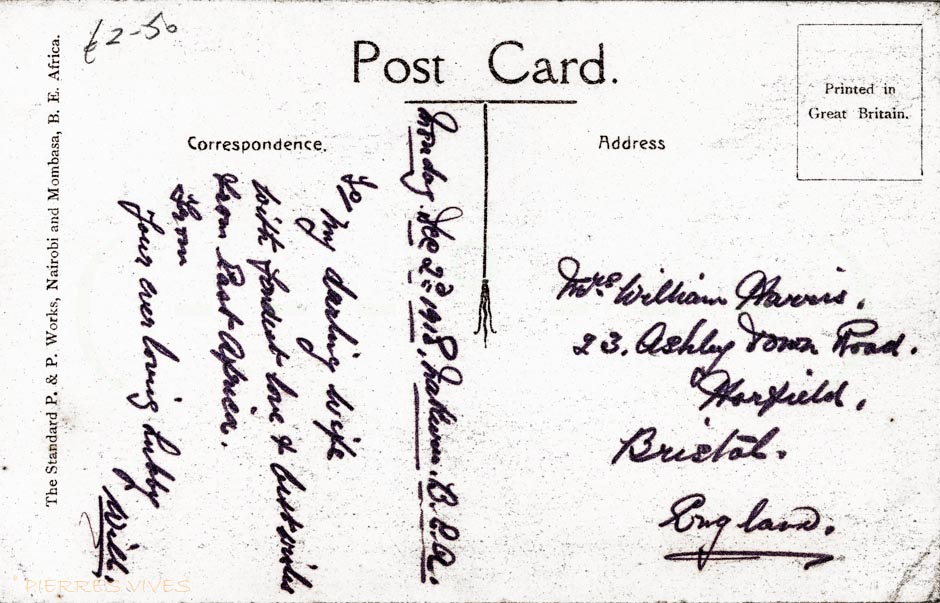 £2-50
Post Card.
Printed in
Great Britain.
Correspondence.
Address
The Standard P. & P. Works, Nairobi and Mombasa, B. E. Africa.
Monday Dec 2nd 1918, B.E.A.
To
My darling wife
with fondest love & best wishes
from East Africa.
From
Your ever loving hubby
Will.
Mrs William Harris,
23. Ashley Down Road.
Horfield,
Bristol.
England.
PIERRES VIVES